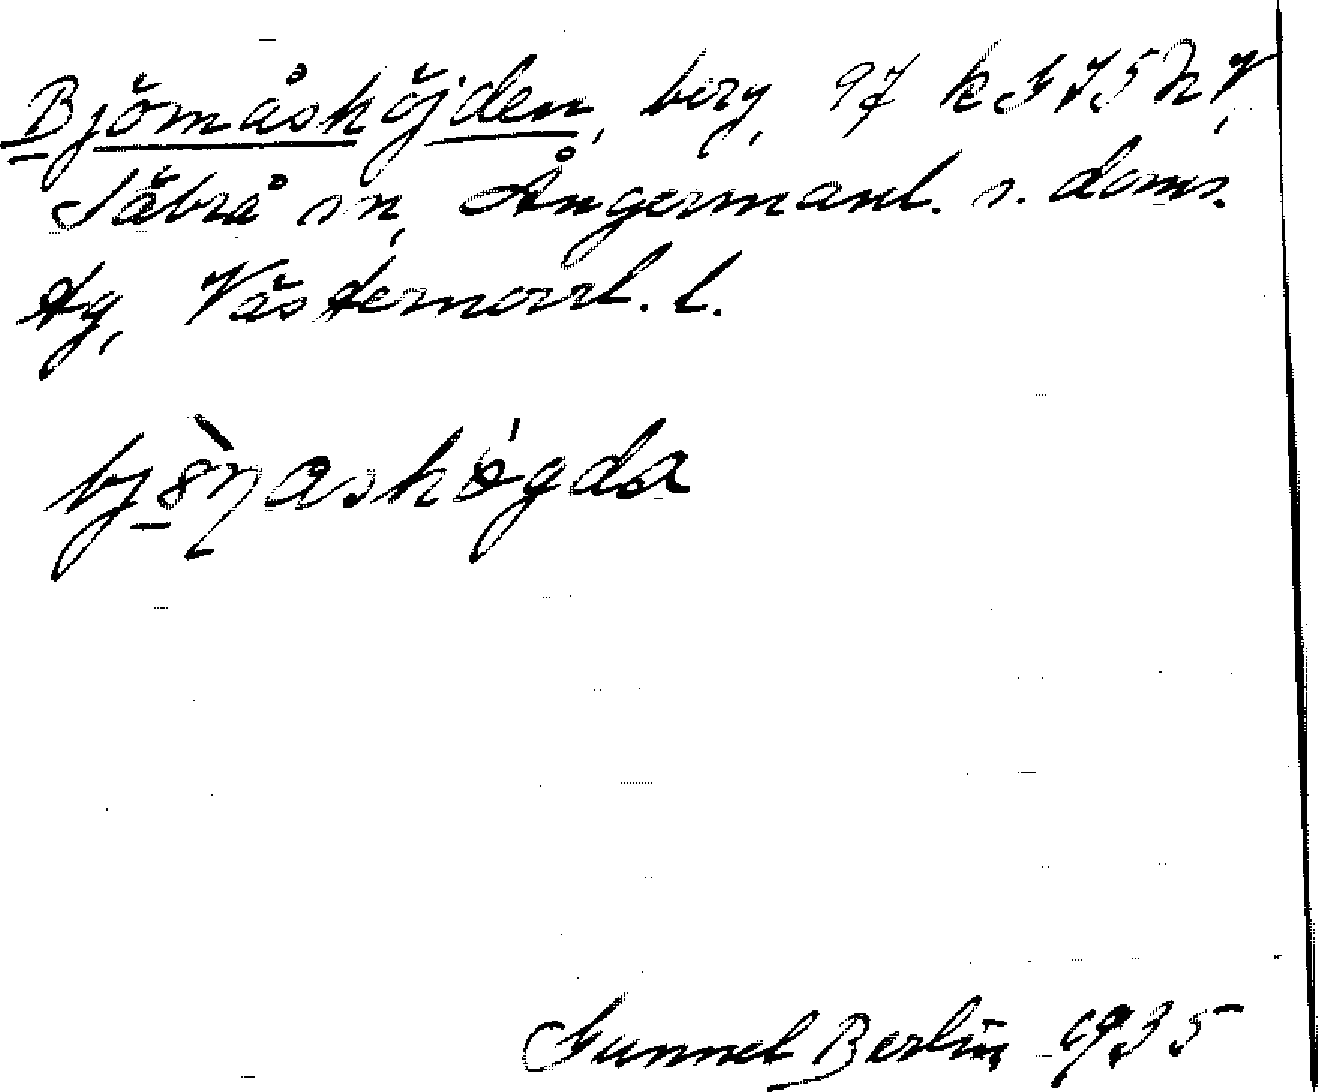 Björnåshöjden, berg, 97 k I J5h V,
Säbrå sn, Ångermanl. s. doms.
tg, Västernorrl. l.
bjö̀ṇashö́gda
Gunnel Berlin 1935